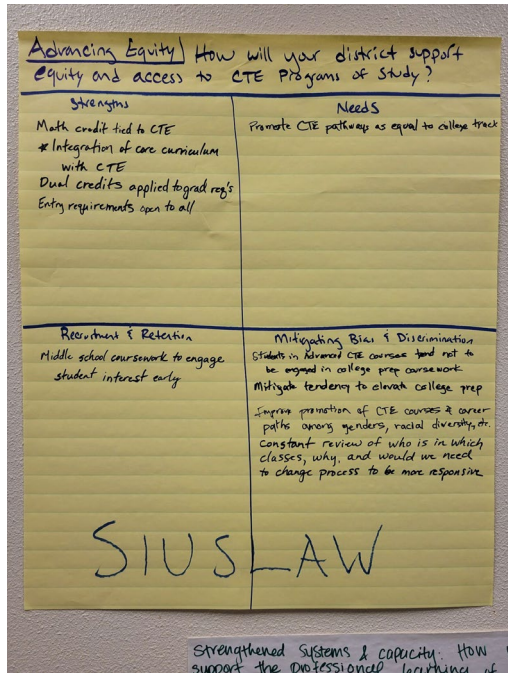 Advancing Equity | How will your district support
equity and access to CTE Programs of Study?
Strengths
Math credit tied to CTE
* Integration of core curriculum
with CTE
Dual credits applied to grad req's
Entry requirements open to all
Needs
Promote CTE pathways as equal to college track
Recruitment & Retention
Middle school coursework to engage
student interest early
Mitigating Bias & Discrimination
Students in Advanced CTE courses tend not to
be engaged in college prep coursework
Mitigate tendency to elevate college prep
Improve promotion of CTE courses & career
paths among genders, racial diversity, etc.
Constant review of who is in which
classes, why, and would we need
to change process to be more responsive
SIUSLAW
Strengthened Systems & capacity: How
support the professional learning of